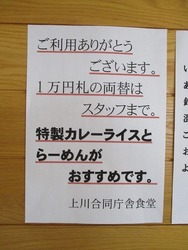 ご利用ありがとう
ございます。
1万円札の両替は
スタッフまで。
特製カレーライスと
らーめんが
おすすめです。
上川合同庁舎食堂